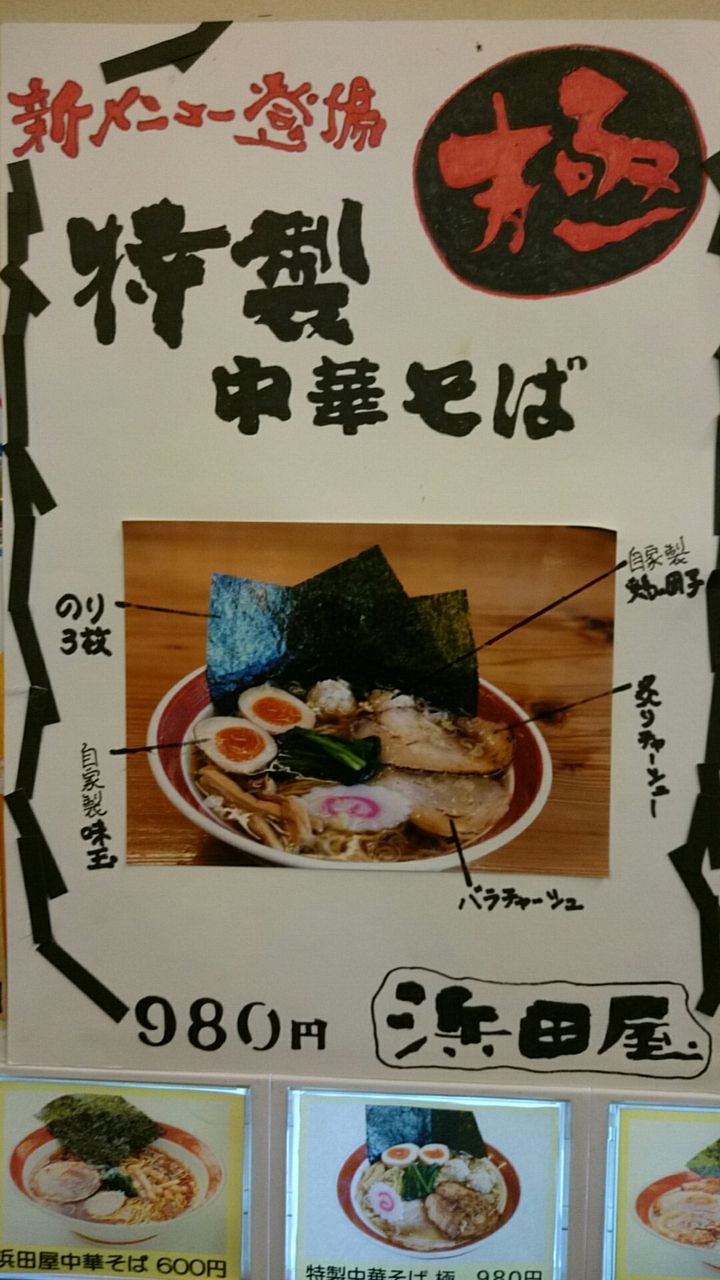 新メニュー登場
極
特製
中華そば
のり
3枚
自家製
炙りチャーシュー
自家製味玉
バラチャーシュー
980円
浜田屋
浜田屋中華そば 600円
特製中華そば 極 980円